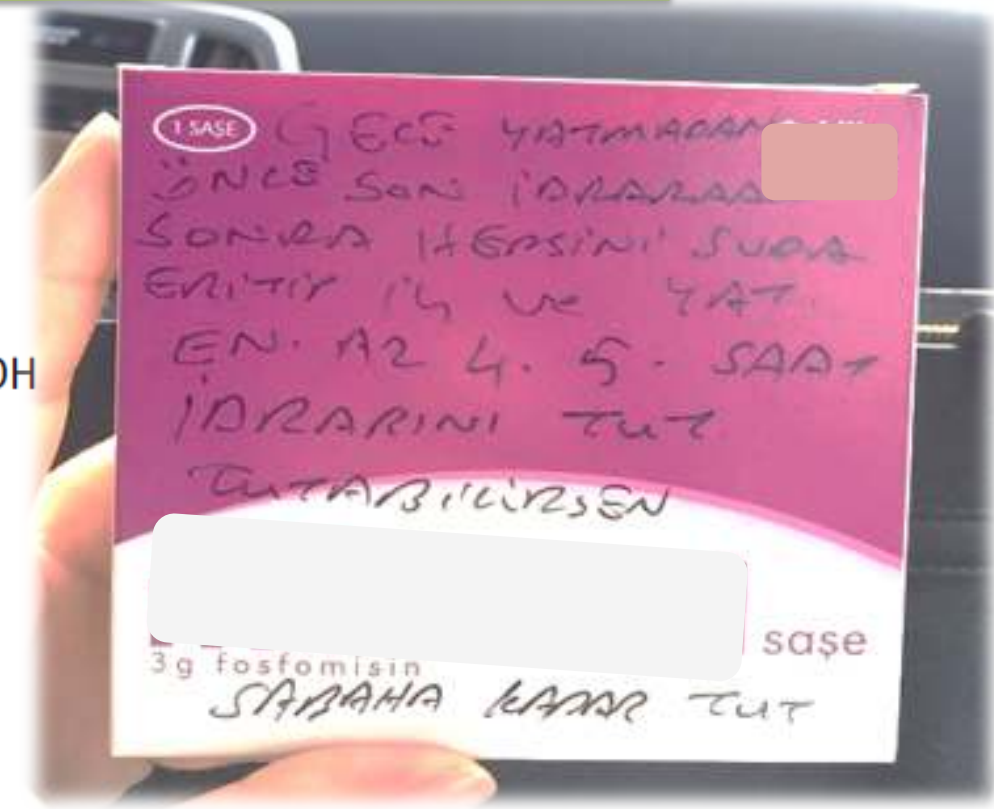 OH
1 SAŞE
GECE YATMADAN
ÖNCE SON İDRARDAN
SONRA HEPSİNİ SUDA
ERİTİP İÇ ve YAT.
EN. AZ 4. 5. SAAT
İDRARINI TUT
TUTABİLİRSEN
saşe
3g fosfomisin
SABAHA KADAR TUT